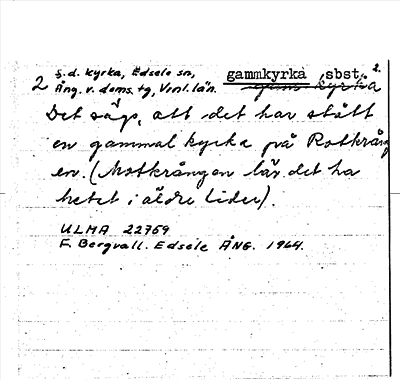 2.
f.d. kyrka, Edsele sn, gammkyrka sbst.
2 Ång. v. doms. tg, Vnl. län. gam kyrka
Det sägs, att det har stått
en gammal kyrka på Rotkrång
en. (Motkrången lär det ha
hetet i äldre tider).
ULMA 22769
F. Bergvall. Edsele ÅNG. 1964.